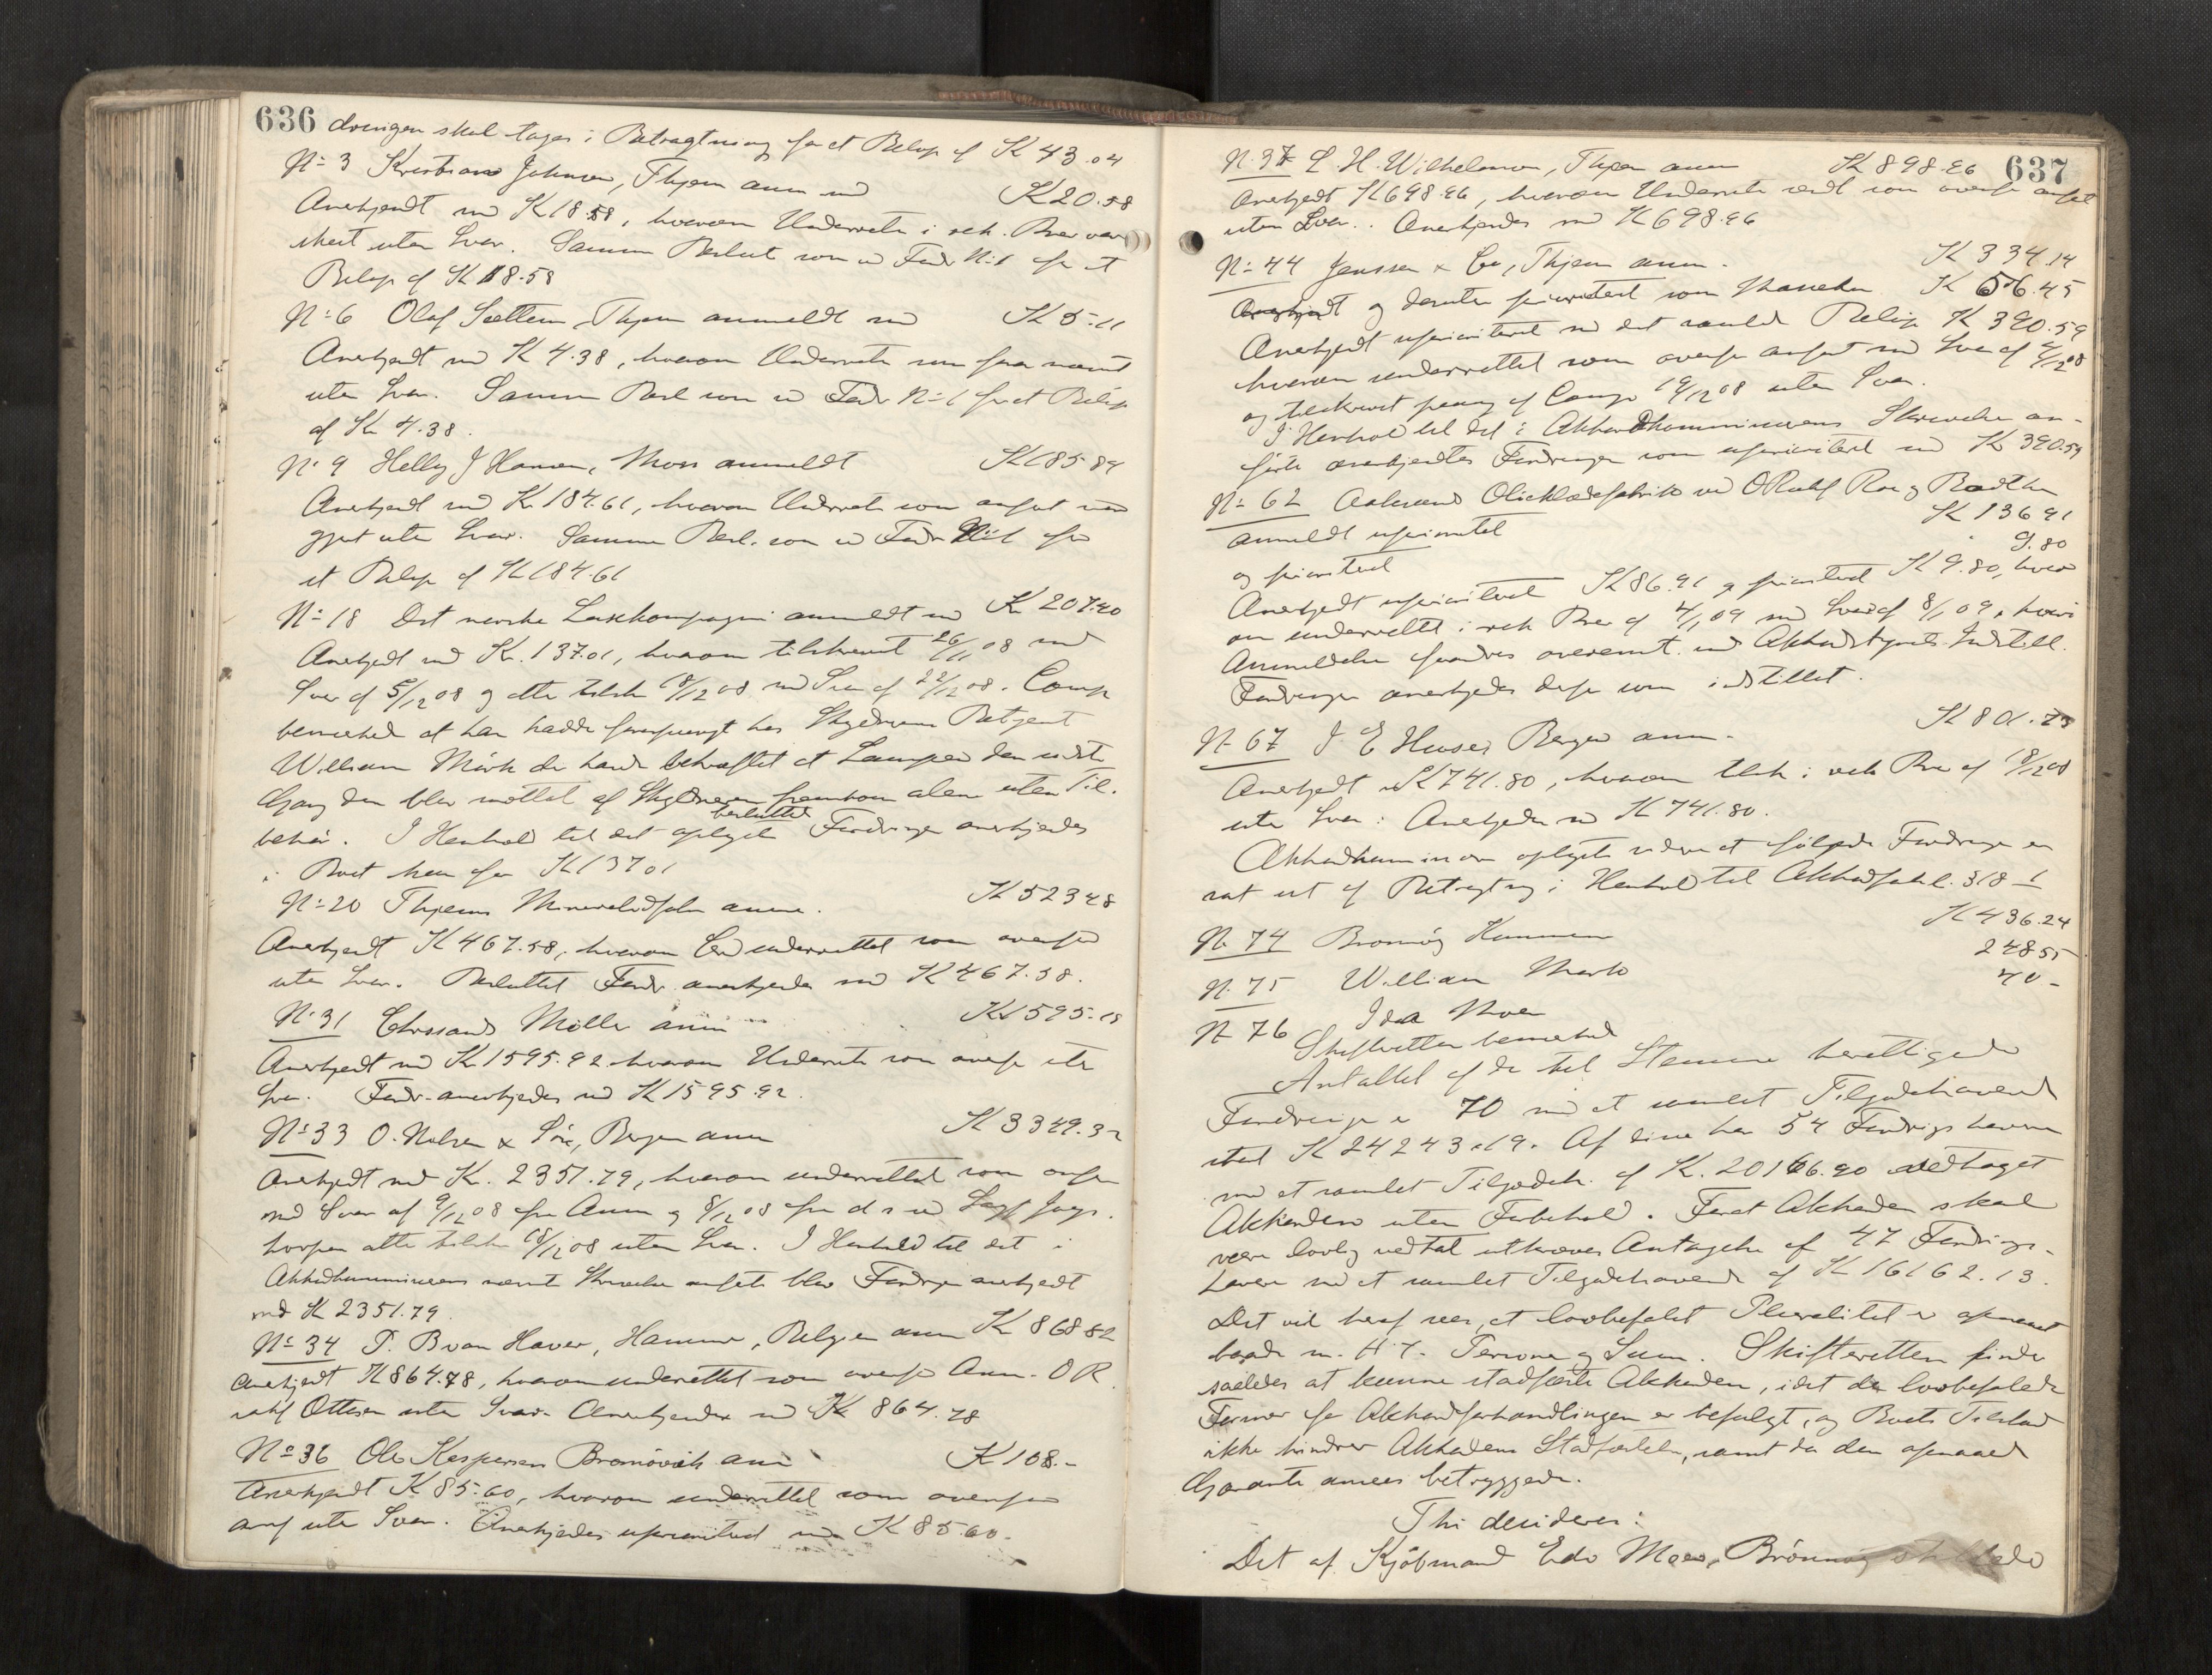 636
dringen skal tages i Betragtning for et Beløp af K 43.04
No 3 Kristian Johnsen, Thjem anm md K 20.58
Anerkjendt md K 18.58, hvorom Underretn i rek. Brev var
skeet uten Svar. Samme Beslut som v Fordr No 1 for et
Beløp af K 18.58
No 6 Olaf Sættem, Thjem anmeldt md K 5.11
Anerkjendt md K 4.38, hvorom Underretn som før nævnt
uten Svar. Samme Besl som v Fordr No 1 for et Beløp
af Kr 4.38.
No 9 Helly J Hansen, Moss anmeldt K 185.89
Anerkjendt md K 184.61, hvorom Underretn som anført
gjort uten Svar. Samme Besl. som v Fordr No 1 for
et Beløp af K 184.61
No 18 Det norske Luxkompagni anmeldt md K 207.40
Anerkjendt md Kr. 137.01, hvorom tilskrevet 26/11 08 md
Svar af 5/12 08 og atter tilskr 18/12 08 md Svar af 22/12 08. Comp
bemerked at han hadde forespurgt hos Skyldneren Betjent
William Mörk der havde bekræftet at Lampen den sidste
Gang den blev mottat af Skyldneren fremkom alene uten Til-
behør. I Henhold til det oplyste besluttet Fordringen anerkjendes
i Boet kun for K 137.01
No 20 Thjems Mineralvandfabr anm. K 523 48
Anerkjendt K 467.58, hvorom Cred underrettet som ovenfor
uten Svar. Besluttet Fordr. anerkjendes md K 467.58.
No 31 Chrssands Mölle anm K 1595.
Anerkjendt md K 1595.92 hvorom Underretn som ovenfor uten
Svar. Fordr. anerkjendes md K 1595.92.
No 33 O. Nilsen & Søn, Bergen anm K 3349.32
Anerkjendt md K. 2351.79, hvorom underrettet som ovenfor
md Svar af 9/12 08 fra Anm og 8/12 08 fra d s v Sagf
atter tilskr 18/12 08 uten Svar. I Henhold til det i
Akkordkommissærens nævnte Skrivelse anførte blev Fordringen anerkjendt
md K 2351.79.
No 34 P. B van Haver, Hamme, Belgien anm K 868 82
Anerkjendt K 864.78, hvorom underrettet som ovenfor Anm. O R
sakf Ottesen uten Svar. Anerkjendes md K 864.78
No 36 Ole Kaspersen Brønøvik anm K 108.-
Anerkjendt K 85.60, hvorom underrettet som ovenfor
anf uten Svar. Anerkjendes uprioritert md K 85.60.
637
No 37 L. H. Wilhelmsen, Thjem anm K 898.86
Anerkjendt K 698.86, hvorom Underretn sendt som ovenfor anført
uten Svar. Anerkjendes md K 698.86
No 44 Jenssen & Co, Thjem anm. K 334.14
og desuten prioritert som K 56.45
Anerkjendt uprioritert md det samlede Beløp K 390.59
hvorom underrettet som ovenfor anført md Svar af /12 08
og tilskrevet paany af Comp 19/12 08 uten Svar.
I Henhold til det i Akkordkommissærens Skrivelse an-
førte anerkjendtes Fordringen som uprioritert md K 390.59
No 62 Aalesunds Olieklædefabrik ved ORsakf Roe og Bødtker
anmeldt uprioritet K 136 91
og prioritert " 9.80
Anerkjendt uprioritert K 86.91 og prioritert K 9.80, hvor
om underrettet i rek Brev af 4/1 09 md Svar af 8/1 09, hvori
Anmeldelsen frafaldes overenst. md Akkordstyrets Indstill.
Fordringen anerkjendes derfor som indstillet.
No 67 J E Huser Bergen anm. K 801.73
Anerkjendt md K 741.80, hvorom tilsk i rek Brev af 18/12 08
uten Svar: Anerkjendes md K 741.80.
Akkordkommissæren oplyste videre at følgende Fordringer er
sat ut af Betragtning i Henhold til Akkordforhl. § 18 1
No 74 Brønnøy Kommune K 436.24
No 75 William Mørk 248 55
No 76 Ida Moen 40 -
Skifteretten bemerked
Antallet af de til Stemme berettigede
Fordringer er 70 md et samlet Tilgodehavende
stort K 24243.19. Af disse har 54 Fordringshavere
md et samlet Tilgodeh. af K. 20166.90 vedtaget
Akkorden uten Forbehold. Foråt Akkorden skal
være lovlig vedtat utkræves Antagelse af 47 Fordrings-
havere md et samlet Tilgodehavende af K 16162.13.
Det vil heraf sees, at lovbefalet Pluralitet er opnaaet
baade m. H. T. Personer og Sum. Skifteretten finder
saaledes at kunne stadfæste Akkorden, idet de lovbefalede
Former for Akkordforhandlingen er befulgt, og Boets Tilstand
ikke hindrer Akkordens Stadfæstelse, samt da den opnaaede
Garanti ansees betryggende.
Thi decideres:
Det af Kjøbmand Edv Moen, Brönnöy